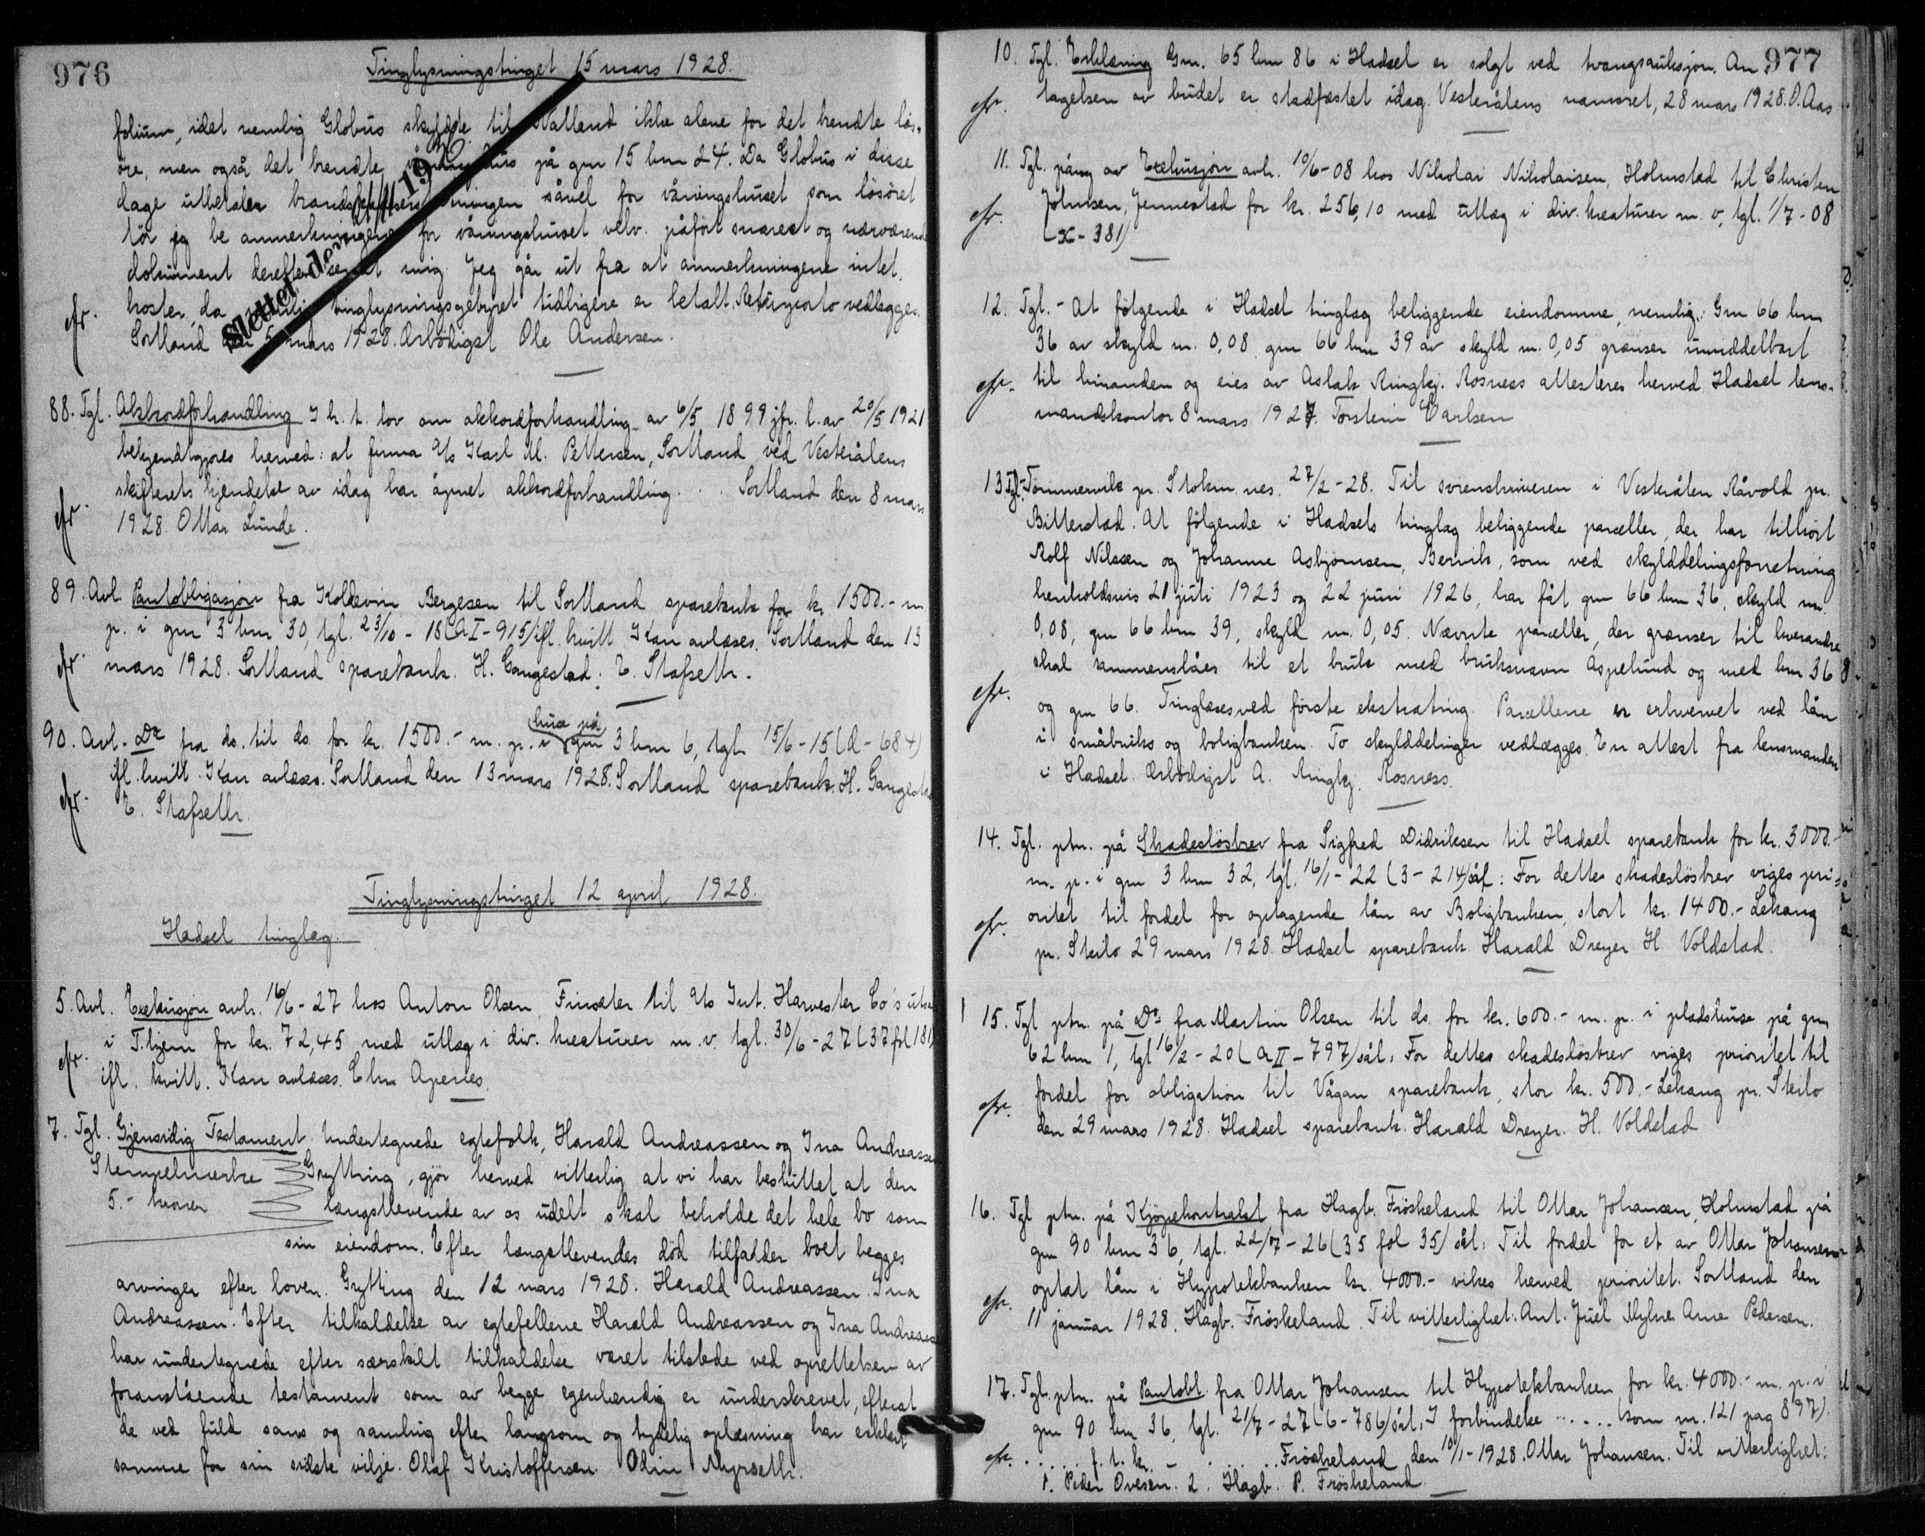 976
Tinglysningstinget 15 mars 1928.
folium, idet nemlig Globus skyldte til Walland ikke alene for det brendte løs-
øre, men også det brendte våningshus på gnr 15 bnr 24. Da Globus i disse
dage utbetaler brandskadeerstatningen såvel for våningshuset som løsøret
tör jeg be anmerkningene for våningshuset velv. påført snarest og nærværende
dokument derefter sendt mig. Jeg går ut fra at anmerkningene intet
koster, da tinglysningsgebyret tidligere er betalt. Returporto vedlegges.
Sortland den 5 mars 1928. Ærbødigst Ole Andersen.
Slettet den 19
efr.
88. Tgl. Akkordforhandling I h. t. lov om akkordforhandling av 6/5 1899 jfr. l. av 20/5 1921
bekjendtgjøres herved: at firma A/s Karl M. Pettersen, Sortland ved Vesterålens
skifterets kjendelse av idag har åpnet akkordforhandling. . . Sortland den 8 mars
efr. 1928. Ottar Lunde.
89. Avl Pantobligasjon fra Koldevin Bergesen til Sortland sparebank for kr. 1500.- m.
p. i gnr 3 bnr 30, tgl. 23/10 - 18 (A I - 915) ifl. kvitt Kan avlæses. Sortland den 13
efr mars 1928. Sortland sparebank. H. Gangestad. E. Stafseth.
90. Avl. - Do fra ds. til ds for kr. 1500.- m. p. i hus på gnr 3 bnr 6, tgl. 15/6 - 15 (A - 684)
ifl. kvitt. Kan avlæses. Sortland den 13 mars 1928. Sortland sparebank. H. Gangestad
efr. E. Stafseth.
Tinglysningstinget 12 april 1928.
Hadsel tinglag.
5. Avl. Exekusjon avh. 16/6 - 27 hos Anton Olsen, Finsæter til A/s Int. Harvester Co's utsa
i T.hjem for kr. 72,45 med utlæg i div. kreaturer m. v. tgl. 30/6 - 27 (37 fol 181)
efr. ifl. kvitt. Kan avlæses. Chr Apenes.
7. Tgl. Gjensidig Testament. Undertegnede egtefolk, Harald Andreassen og Ina Andreassen
Stempelmerke Grytting, gjør herved vitterlig at vi har besluttet at den
5.- kroner længstlevende av os udelt skal beholde det hele bo som
sin eiendom. Efter længstlevendes död tilfalder boet begges
arvinger efter loven. Grytting den 12 mars 1928. Harald Andreassen. Ina
Andreassen. Efter tilkaldelse av egtefellene Harald Andreassen og Ina Andreassen
har undertegnede efter særskilt tilkaldelse været tilstede ved oprettelsen av
foranstående testament som av begge egenhændig er underskrevet, efterat
de ved fuld sans og samling efter langsom og tydelig oplæsning har erklært
samme for sin sidste vilje. Olaf Kristoffersen Odin Myrseth.
977
10. Tgl. Erklæring Gnr. 65 bnr 86 i Hadsel er solgt ved tvangsauksjon. An
efr. tagelsen av budet er stadfæstet idag. Vesterålens namsret, 28 mars 1928. O. Aas
11. Tgl. påny av Exekusjon avh. 10/6 - 08 hos Nikolai Nikolaisen, Holmstad til Christen
efr. Johnsen, Jennestad for kr. 256,10 med utlæg i div. kreaturer m. v, tgl. 1/7 - 08
(X - 381)
12. Tgl. - At følgende i Hadsel tinglag beliggende eiendomme, nemlig: Gnr 66 bnr
36 av skyld m. 0,08 gnr 66 bnr 39 av skyld m. 0,05 grænser umiddelbart
efr. til hinanden og eies av Aslak Ringkj. Rosness attesteres herved. Hadsel lens-
mandskontor 8 mars 1927. Torstein Carlsen
13 Tgl. Tömmervik pr. Stokm.nes. 27/2 - 28. Til sorenskriveren i Vesterålen Råvold pr.
Bitterstad. At følgende i Hadsels tinglag beliggende parceller, der har tilhört
Rolf Nilssen og Johanne Asbjørnsen, Bervik, som ved skylddelingsforretning
henholdsvis 21 juli 1923 og 22 juni 1926, har fåt gnr 66 bnr 36, skyld m.
0,08, gnr 66 bnr 39, skyld m. 0,05. Nævnte parceller, der grænser til hverandre
skal sammenslåes til et bruk med bruksnavn Aspelund og med bnr 36
efr. og gnr 66. Tinglæses ved første ekstrating. Parcellene er erhvervet ved lån
i småbruks og boligbanken. To skylddelinger vedlægges. En attest fra lensmanden
i Hadsel. Ærbødigst A. Ringkj. Rosness.
14. Tgl. ptn. på Skadesløsbrev fra Sigfred Didriksen til Hadsel sparebank for kr. 3000.-
m. p. i gnr 3 bnr 32, tgl. 16/1 - 22 (3 - 214) sål: For dette skadesløsbrev viges pri-
efr. oritet til fordel for optagende lån av Boligbanken, stort kr. 1400.- Lekang
pr. Steilo 29 mars 1928. Hadsel sparebank. Harald Dreyer H. Voldstad.
15. Tgl ptn. på Do fra Martin Olsen til ds. for kr. 600.- m. p. i pladshuse på gnr
62 bnr 1, tgl 16/2 - 20 (A II - 797) sål: For dette skadesløsbrev viges prioritet til
efr. fordel for obligation til Vågan sparebank, stor kr. 500.- Lekang pr. Steilo
den 29 mars 1928. Hadsel sparebank. Harald Dreyer. H. Voldstad
16. Tgl ptn. på Kjøpekontrakt fra Hagb. Frøskeland til Ottar Johansen, Holmstad på
gnr 90 bnr 36, tgl. 22/7 - 26 (35 fol 35) sål: Til fordel for et av Ottar Johansen
efr. optat lån i Hypotekbanken kr. 4000.- vikes herved prioritet. Sortland den
11 januar 1928. Hagb. Frøskeland. Til vitterlighet: Ant. Juel Myhre Arne Pedersen.
17. Tgl. ptn. på Pantobl. fra Ottar Johansen til Hypotekbanken for kr. 4000.- m. p. i
gnr 90 bnr 36, tgl. 21/7 - 27 (6 - 786) sål. I forbindelse ..... (som nr. 121 pag 897)
efr. ..... f. t. k. - ..... Frøskeland den 10/1 - 1928. Ottar Johansen. Til vitterlighet:
1. Peder Ovesen. 2. Hagb. P. Frøskeland.